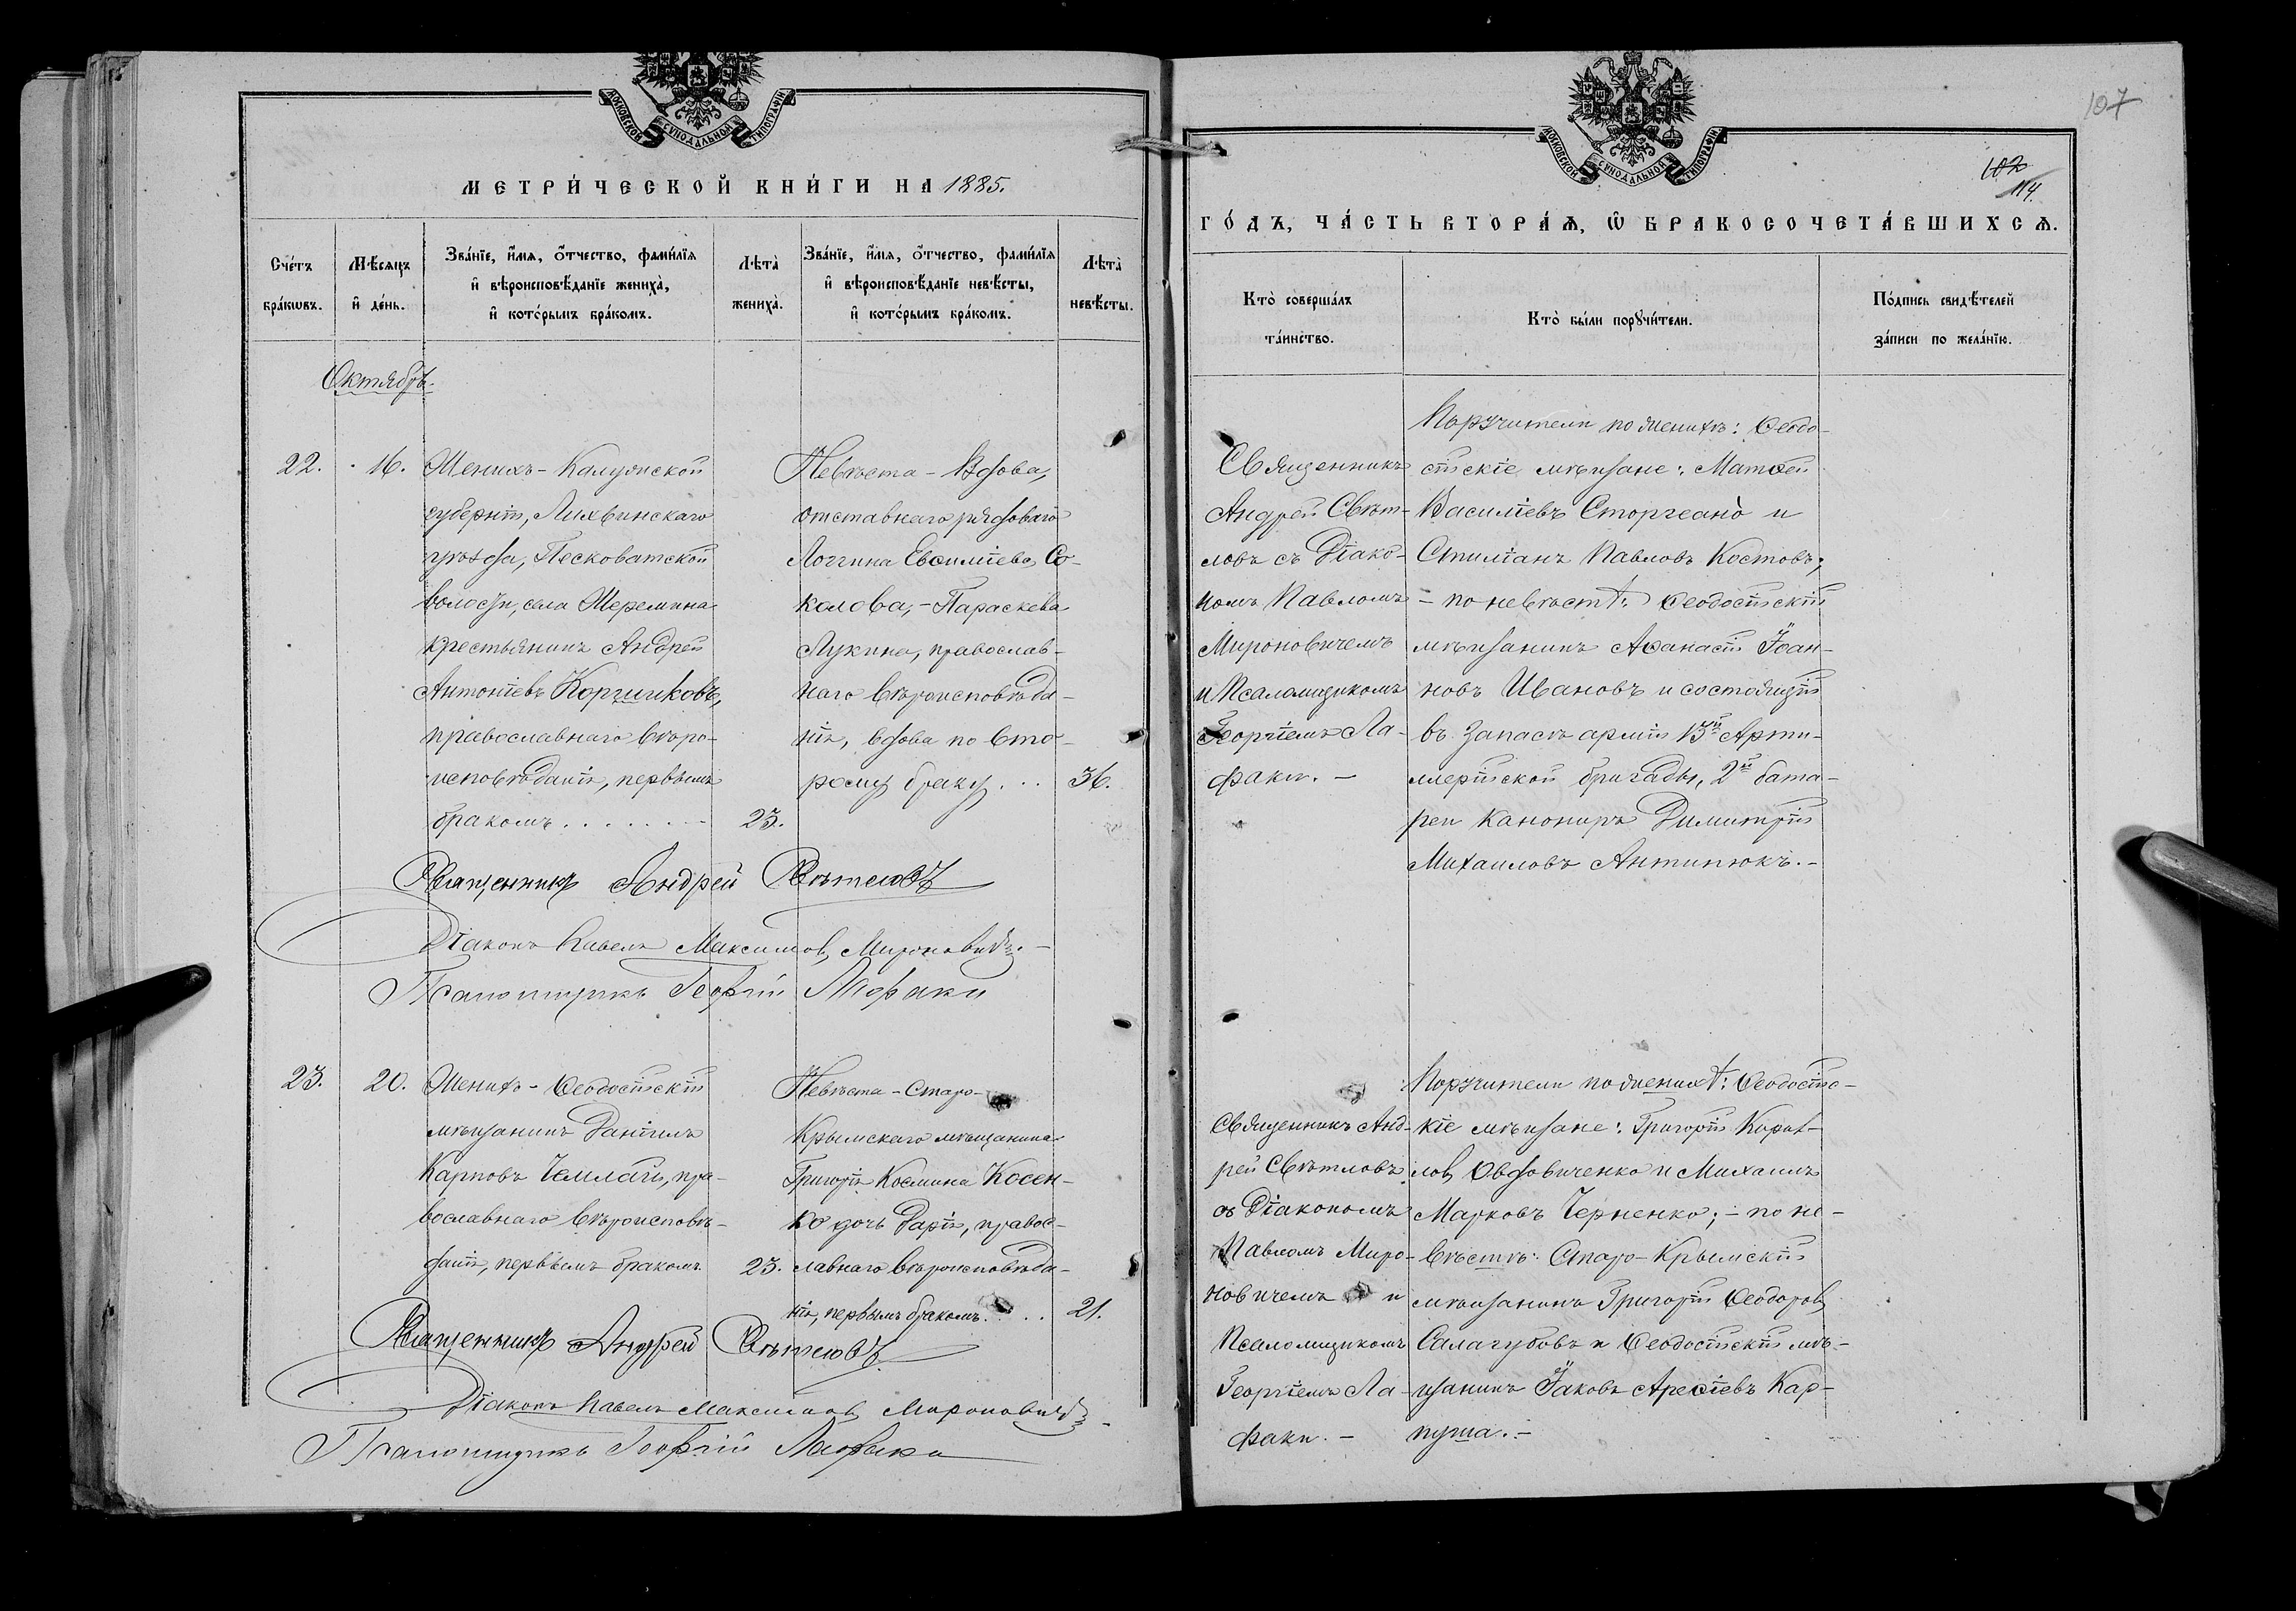 МОСКОВСКОЙ СѴНОДАЛЬНОЙ ТИПОГРАФІИ
МЕТРИ́ЧЕСКОЙ КНИ́ГИ НА 1885.
Сче́тъ бра́кѡвъ.
Мѣ́сяцъ и҆ де́нь.
Зва́нїе, и҆́мѧ, ѻ҆́тчество, фами́лїѧ и҆ вѣроисповѣ́данїе жениха̀, и҆ кото́рымъ бра́комъ.
Лѣ́та жениха̀.
Зва́нїе, и҆́мѧ, ѻ҆́тчество, фами́лїѧ и҆ вѣроисповѣ́данїе невѣ́сты, и҆ кото́рымъ бра́комъ.
Лѣ́та невѣ́сты.
Октябрь.
22.
16.
Женихъ - Калужской
губерніи, Лихвинскаго
уѣзда, Песковатской
волости, села Жеремина
крестьянинъ Андрей
Антоніевъ Коргшиковъ,
православнаго вѣро-
исповѣданія, первымъ
бракомъ . . . . . . .
23.
Невѣста - Вдова,
отставнаго рядоваго
Логгина Евѳиміева Со-
колова, - Параскева
Лукина, православ-
наго вѣроисповѣда-
нія, вдова по вто-
рому браку . . .
36.
Священникъ Андрей Свѣтловъ
Діаконъ Павелъ Максимов Мироновичъ. -
Псаломщикъ Георгій Лафаки
23.
20.
Женихъ - Ѳеодосійскій
мѣщанинъ Даніилъ
Карповъ Чемлай, пра-
вославнаго вѣроисповѣ-
данія, первымъ бракомъ
23.
Невѣста - Старо-
Крымскаго мѣщанина
Григорія Космина Косен-
ко дочь Дарія, правос-
лавнаго вѣроисповѣда-
нія, первымъ бракомъ . . .
21.
Священникъ Андрей Свѣтловъ
Діаконъ Павелъ Максимов Мироновичъ -
Псаломщикъ Георгій Лафаки
107
МОСКОВСКОЙ СѴНОДАЛЬНОЙ ТИПОГРАФІИ
102
114.
ГО́ДЪ, ЧА́СТЬ ВТОРА́Ѧ, Ѡ҆ БРАКОСОЧЕТА́ВШИХСѦ.
Кто̀ соверша́лъ та́инство.
Кто̀ бы́ли порꙋчи́тели.
По́дпись свидѣ́телей за́писи по жела́нїю.
Священникъ
Андрей Свѣт-
ловъ съ Діако-
номъ Павломъ
Мироновичемъ
и Псаломщикомъ
Георгіемъ Ла-
факи. -
Поручители по женихѣ: Ѳеодо-
сійскіе мѣщане: Матѳей
Василіевъ Сторгеано и
Стиліанъ Павловъ Костовъ;
- по невѣстѣ: Ѳеодосійскій
мѣщанинъ Аѳанасій Іоан-
новъ Ивановъ и состоящій
въ запасѣ арміи 13й Арти-
ллерійской бригады, 2й бата-
реи канониръ Димитрій
Михаиловъ Антипюкъ. -
Священникъ Анд-
рей Свѣтловъ
съ Діакономъ
Павломъ Миро-
новичемъ и
Псаломщикомъ
Георгіемъ Ла-
факи. -
Поручители по женихѣ: Ѳеодосійс-
кіе мѣщане: Григорій Корни-
лов Овдовиченко и Михаилъ
Марковъ Черненко; - по не-
вѣстѣ: Старо-Крымскій
мѣщанинъ Григорій Ѳеодоров
Салагубовъ и Ѳеодосійскій мѣ-
щанинъ Іаковъ Арефіевъ Кар-
пуша. -